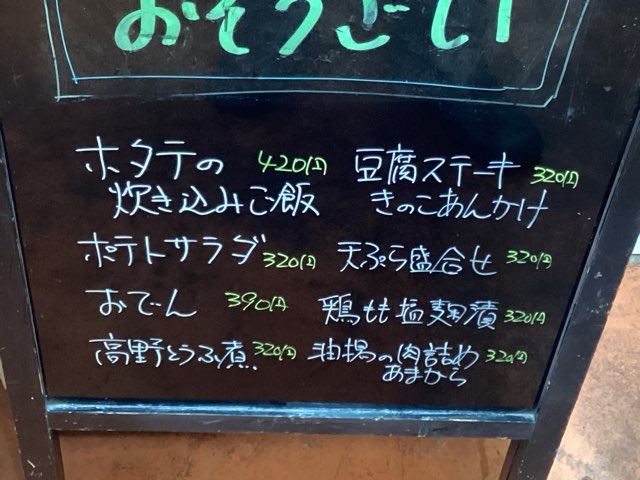 おそうざい
ホタテの 420円
炊き込みご飯
ポテトサラダ 320円
おでん 390円
高野とうふ煮 320円
豆腐ステーキ 320円
きのこあんかけ
天ぷら盛合せ 320円
鶏もも塩麹漬 320円
油揚の肉詰め 320円
あまから